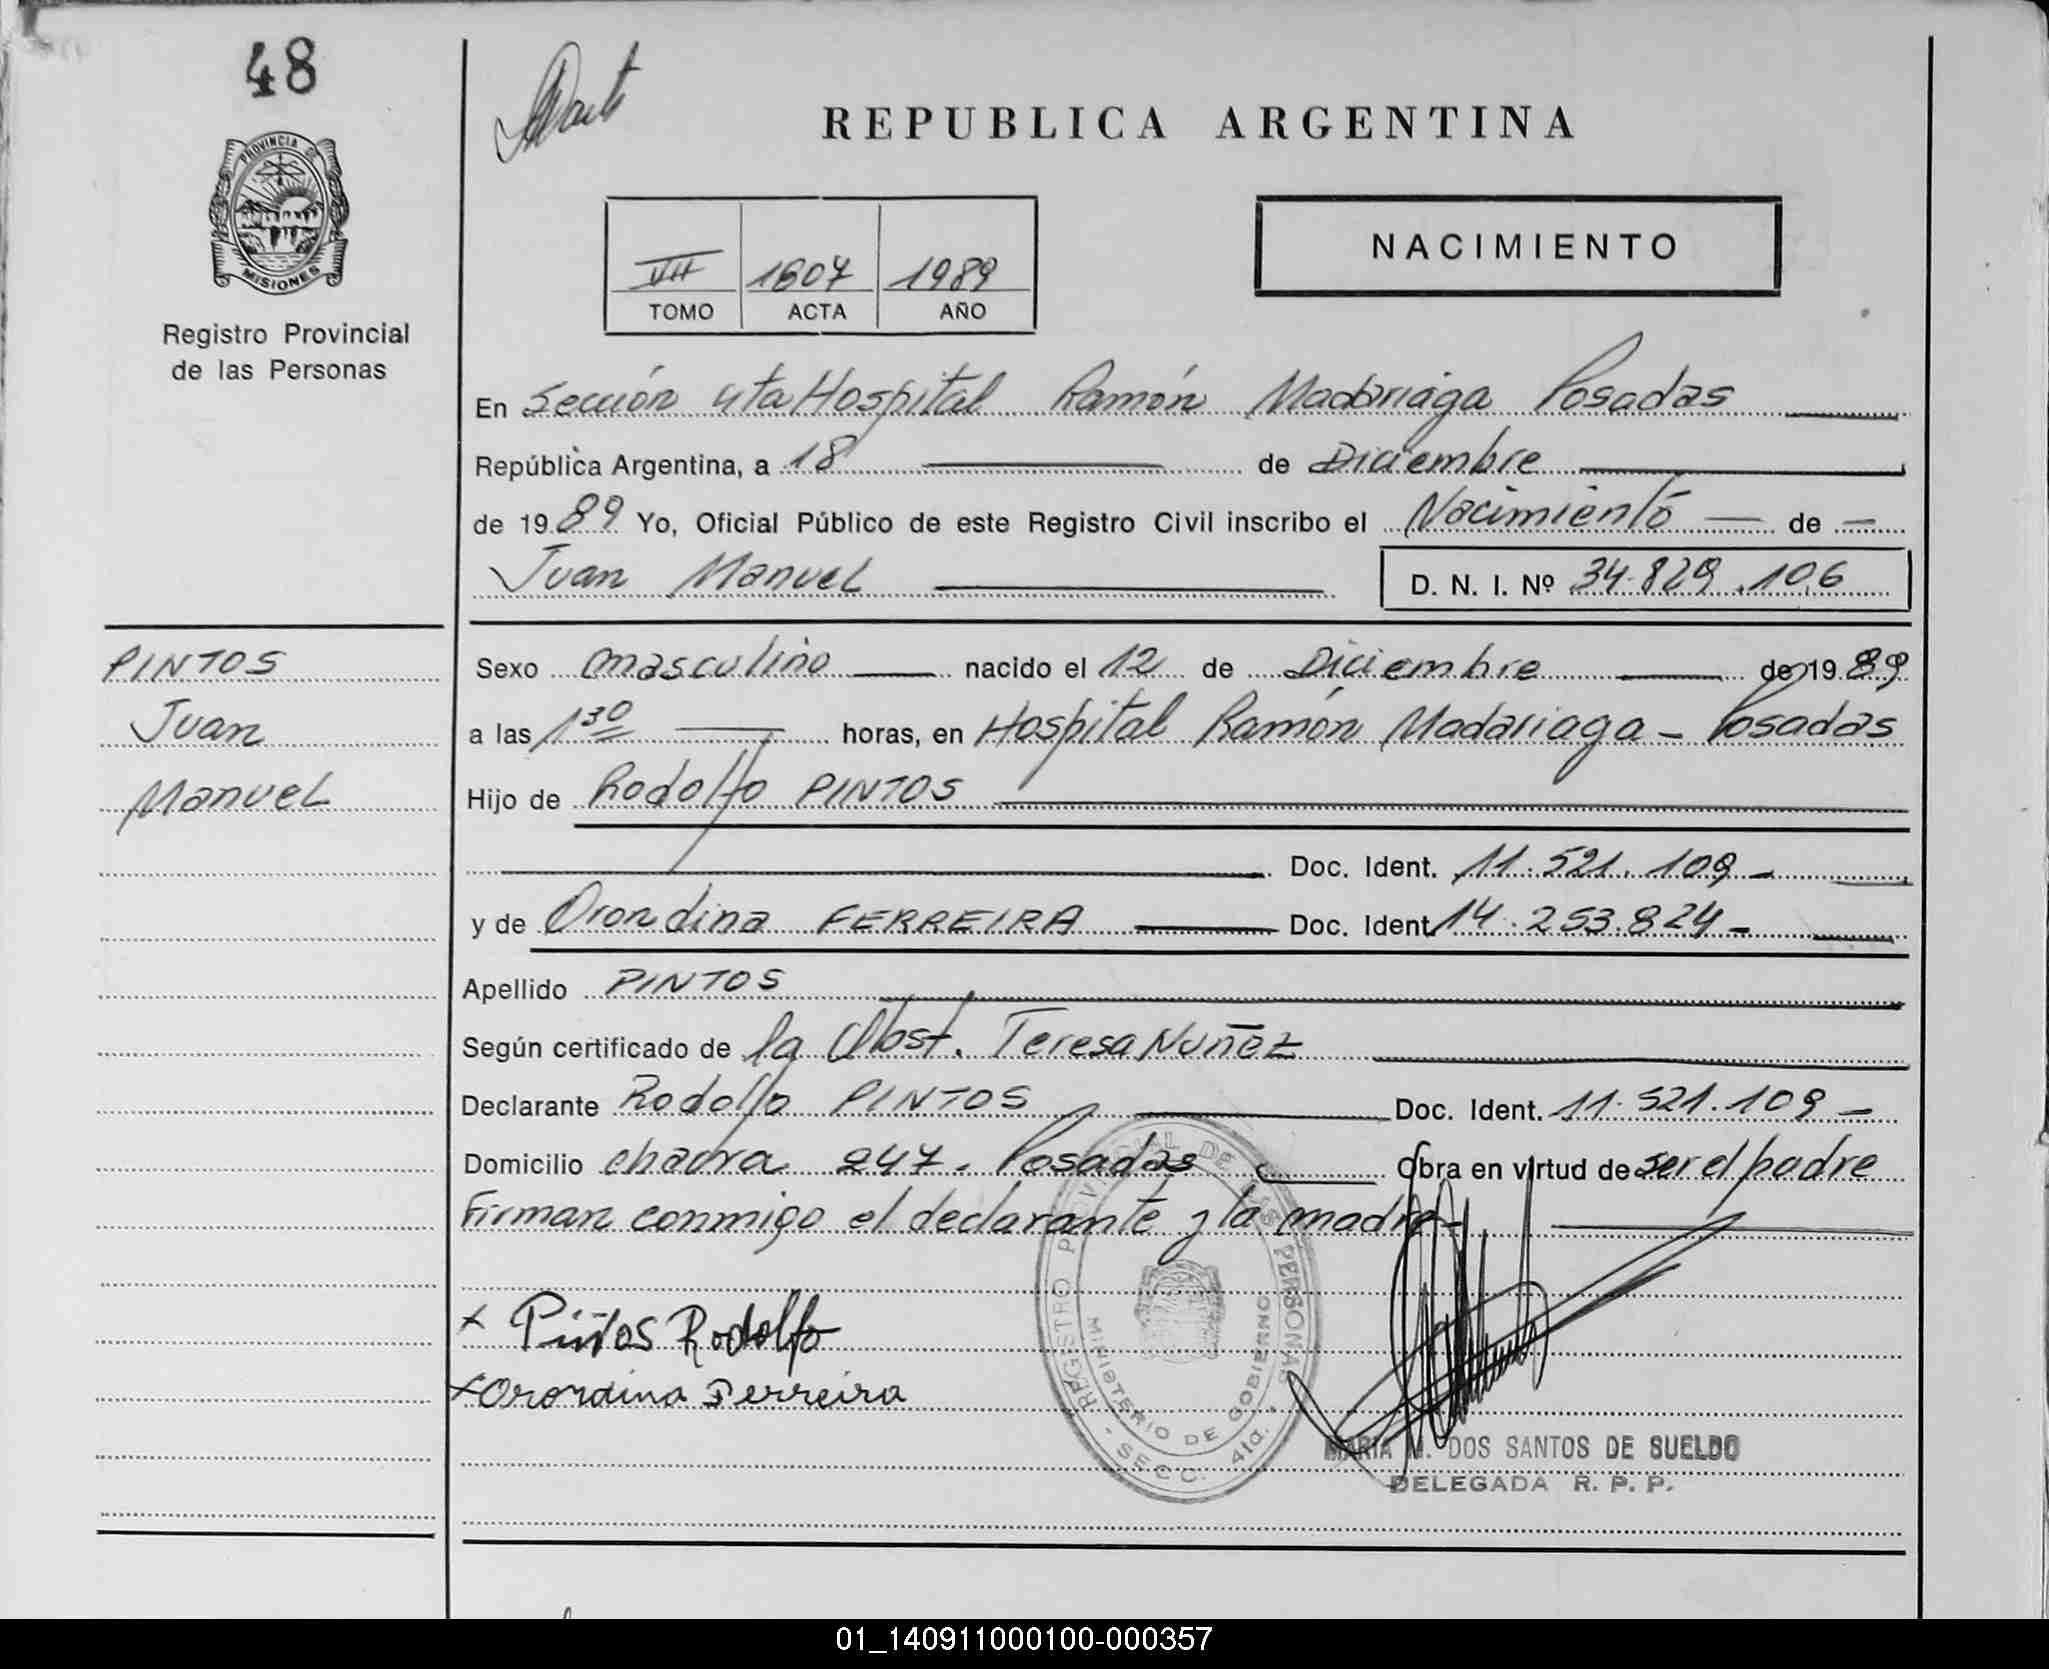 48
PROVINCIA DE
MISIONES
Registro Provincial
de las Personas
REPUBLICA ARGENTINA
VII 1607 1989
TOMO ACTA AÑO
NACIMIENTO
En Sección 4ta Hospital Ramón Madariaga Posadas
República Argentina, a 18 de Diciembre
de 1989 Yo, Oficial Público de este Registro Civil inscribo el Nacimiento de
Juan Manuel
D. N. I. Nº 34.829.106
PINTOS
Juan
Manuel
Sexo masculino nacido el 12 de Diciembre de 1989
a las 1 30 horas, en Hospital Ramón Madariaga - Posadas
Hijo de Rodolfo PINTOS
Doc. Ident. 11.521.109-
y de Orondina FERREIRA Doc. Ident. 14.253.824-
Apellido PINTOS
Según certificado de la Obst. Teresa Nuñez
Declarante Rodolfo PINTOS Doc. Ident. 11.521.109-
Domicilio chacra 247. Posadas Obra en virtud de ser el padre
Firman conmigo el declarante y la madre-
x Pintos Rodolfo
x Orondina Ferreira
REGISTRO PROVINCIAL DE LAS PERSONAS
MINISTERIO DE GOBIERNO
- SECC. 4ta. -
MARIA M. DOS SANTOS DE SUELDO
DELEGADA R. P. P.
01_140911000100-000357